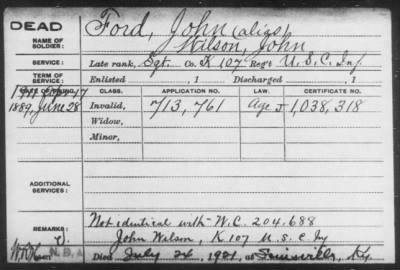 DEAD
Ford, John (alias)
NAME OF SOLDIER:
Wilson, John
SERVICE:
Late rank, Sgt. Co. K 107 Reg't U.S.C. Inf
TERM OF SERVICE:
Enlisted , 1 Discharged , 1
CLASS. APPLICATION NO. LAW. CERTIFICATE NO.
1889, June 28 Invalid, 713,761 Age J 1,038,318
Widow,
Minor,
ADDITIONAL SERVICES:
REMARKS:
Not identical with W.C. 204.688
John Wilson, K 107 U.S.C. Inf
Died July 24, 1921, at Louisville, Ky.